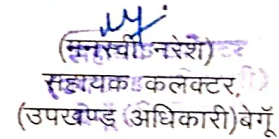 (मनस्वी नरेश)
सहायक कलेक्टर,
(उपखण्ड अधिकारी) बेगूँ